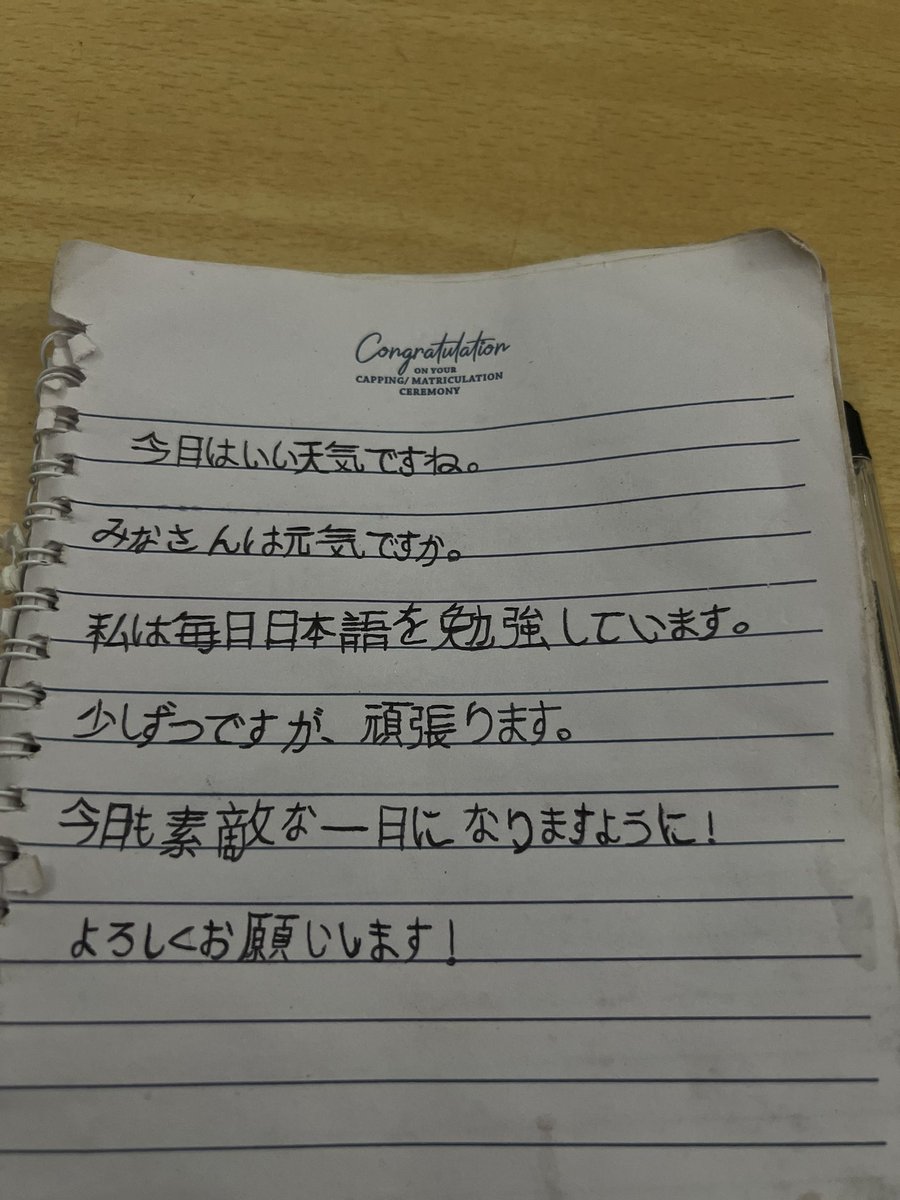 Congratulation
ON YOUR
CAPPING/ MATRICULATION
CEREMONY
今日はいい天気ですね。
みなさんは元気ですか。
私は毎日日本語を勉強しています。
少しずつですが、頑張ります。
今日も素敵な一日になりますように!
よろしくお願いします!